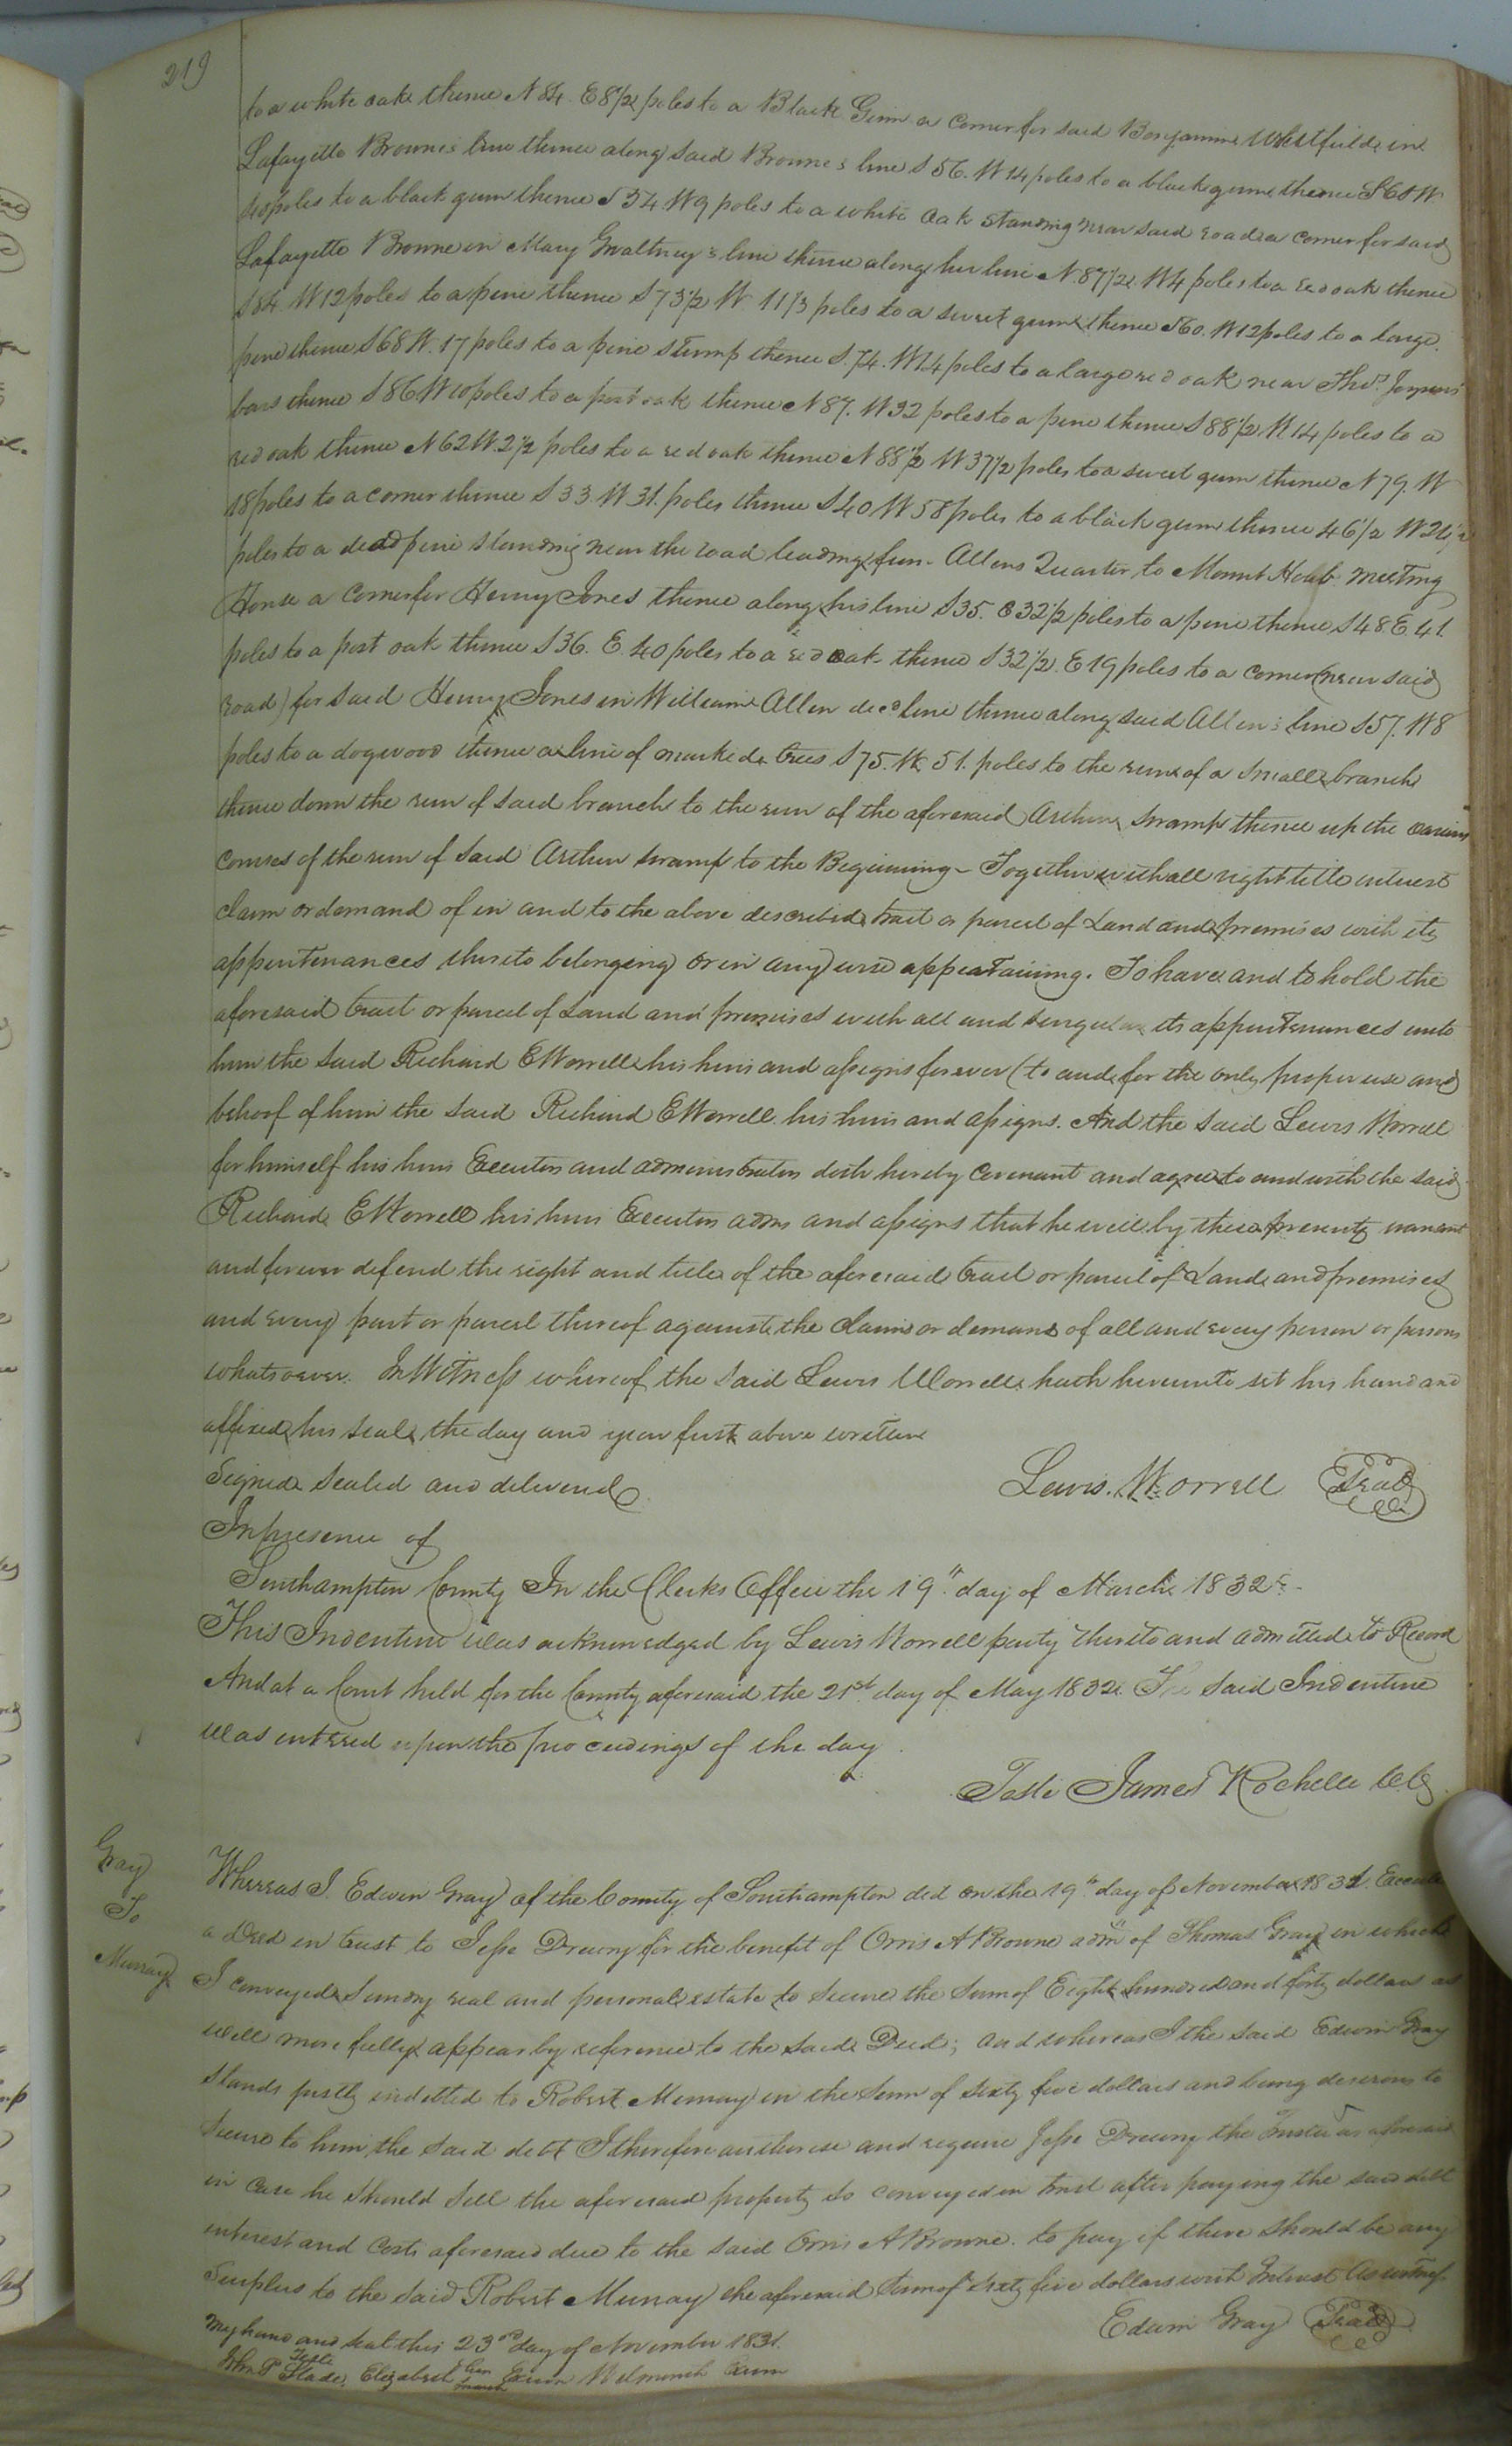 219
to a white oak thence N 84. E 8 1/2 poles to a Black Gum a corner for said Benjamin Whitfield in
Lafayette Browne's line thence along said Browne's line S 56. W 14 poles to a black gum thence S 60 W
poles to a black gum thence S 34 W 9 poles to a white oak standing near said road a corner for said
Lafayette Browne in Mary Gwaltney's line thence along her line N. 87 1/2. W 4 poles to a red oak thence
S 84. W 12 poles to a pine thence S 73 1/2 W. 11 1/3 poles to a sweet gum thence S 60. W 12 poles to a large
pine thence S 68 W. 17 poles to a pine stump thence S. 74. W 14 poles to a large red oak near Thos. Joyners
bars thence S 86 W 10 poles to a post oak thence N 87. W 32 poles to a pine thence S 88 1/2 W 14 poles to a
red oak thence N 62 W. 2 1/2 poles to a red oak thence N 88 1/2 W 37 1/2 poles to a sweet gum thence N 79. W
18 poles to a corner thence S 33. W 31. poles thence S 40 W 58 poles to a black gum thence 46 1/2 W 24 1/2
poles to a dead pine standing near the road leading from Allens Quarter to Mount Horeb meeting
House a corner for Henry Jones thence along his line S 35. E 32 1/2 poles to a pine thence S 48. E. 41.
poles to a post oak thence S 36. E. 40 poles to a red oak thence S 32 1/2. E 19 poles to a corner (near said
road) for said Henry Jones in William Allen decd line thence along said Allen's line S 57. W 8
poles to a dogwood thence a line of marked trees S 75. W. 51. poles to the run of a small branch
thence down the run of said branch to the run of the aforesaid Arthur swamp thence up the various
courses of the run of said Arthur swamp to the Beginning - Together with all right title interest
claim or demand of in and to the above described tract or parcel of Land and premises with its
appurtenances thereto belonging or in any wise appertaining. To have and to hold the
aforesaid tract or parcel of Land and premises with all and singular its appurtenances unto
him the said Richard E Worrell his heirs and assigns forever (to and for the only proper use and
behoof of him the said Richard E Worrell his heirs and assigns. And the said Lewis Worrell
for himself his heirs Executors and administrators doth hereby covenant and agree to and with the said
Richard E Worrell his heirs Executors adms and assigns that he will by these presents warrant
and forever defend the right and title of the aforesaid tract or parcel of Land and premises
and every part or parcel thereof against the claims or demand of all and every person or persons
whatsoever. In Witness whereof the said Lewis Worrell hath hereunto set his hand and
affixed his seal the day and year first above written
Signed sealed and delivered
Lewis. Worrell Seal
In presence of
Southampton County In the Clerks Office the 19th day of March 1832
This Indenture was acknowledged by Lewis Worrell party thereto and admitted to Record
And at a Court held for the County aforesaid the 21st day of May 1832. The said Indenture
was entered upon the proceedings of the day
Teste James Rochelle
Gray
To
Murray
Whereas I. Edwin Gray of the County of Southampton did on the 19th day of November 1831. Execute
a Deed in trust to Jesse Drewry for the benefit of Orris A Browne adm of Thomas Gray in which
I conveyed sundry real and personal estate to secure the sum of Eight hundred and forty dollars as
will more fully appear by reference to the said Deed; and whereas I the said Edwin Gray
stands justly indebted to Robert Murray in the sum of sixty five dollars and being desirous to
secure to him the said debt I therefore authorise and require Jesse Drewry the Trustee as aforesaid
in case he should sell the aforesaid property so conveyed in trust after paying the said debt
interest and costs aforesaid due to the said Orris A Browne. to pay if there should be any
surplus to the said Robert Murray the aforesaid sum of sixty five dollars with Interest As witness
my hand and seal this 23rd day of November 1831.
Edwin Gray Seal
Teste
John P Slade, Elizabeth her mark Exum Exum